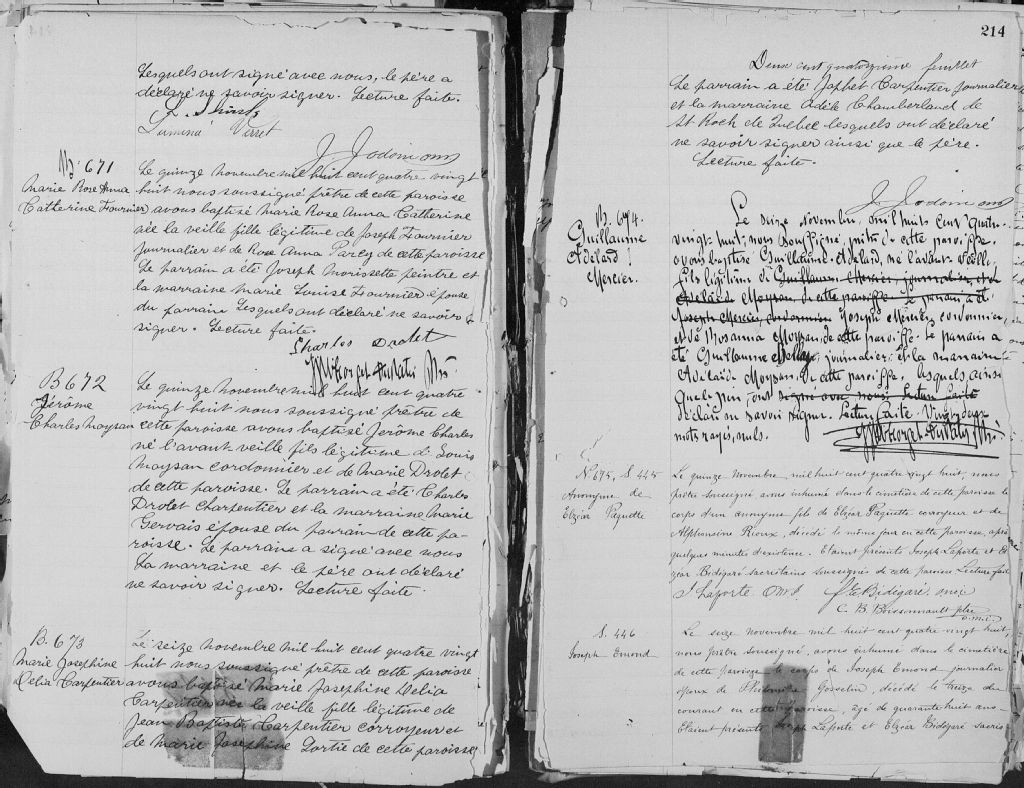 Lesquels ont signé avec nous, le père a
déclaré ne savoir signer. Lecture faite.
Lumina Verret
J. Jodoin omi
B. 671
Marie Rose Anna
Catherine Fournier
Le quinze novembre mil huit cent quatre-vingt
huit nous soussigné prêtre de cette paroisse
avons baptisé Marie Rose Anna Catherine
née la veille fille légitime de Joseph Fournier
journalier et de Rose Anna Parey de cette paroisse
Le parrain a été Joseph Morissette peintre et
la marraine Marie Louise Fournier épouse
du parrain lesquels ont déclaré ne savoir
signer. Lecture faite.
Charles Drolet
B 672
Jérôme
Charles Moysan
Le quinze novembre mil huit cent quatre
vingt huit nous soussigné prêtre de
cette paroisse avons baptisé Jérôme Charles
né l'avant-veille fils légitime d Louis
Moysan cordonnier et de Marie Drolet
de cette paroisse. Le parrain a été Charles
Drolet Charpentier et la marraine Marie
Gervais épouse du parrain de cette pa-
roisse. Le parrains a signé avec nous
La marraine et le père ont déclaré
ne savoir signer. Lecture faite.
B. 673
Marie Josephine
Delia Carpentier
Le seize novembre mil huit cent quatre vingt
huit nous soussigné prêtre de cette paroisse
avons baptisé Marie Josephine Delia
Carpentier née la veille fille légitime de
Jean Baptiste Carpentier corroyeur et
de Marie Josephine Dortie de cette paroisse
214
Deux cent quatorzième feuillet
Le parrain a été Japhet Carpentier journalier
et la marraine Adèle Chamberland de
St Roch de Quebec lesquels ont déclaré
ne savoir signer ainsi que le père.
Lecture faite.
J. Jodoin omi
B. 674.
Guillaume
Adelard
Mercier.
Le seize novembre, mil huit cent quatre-
vingt-huit, nous soussigné, prêtre de cette paroisse,
avons baptisé Guillaume-Adelard, né l'avant-veille,
fils légitime de Guillaume Mercier journalier, et d
Adelaïde Moysan, de cette paroisse. Le parrain a été
Joseph Mercier, cordonnier Joseph Mercier, cordonnier,
et de Rosanna Moysan, de cette paroisse. Le parrain a
été Guillaume journalier, et la marraine
Adelaïde Moysan, de cette paroisse, lesquels, ainsi
que le père, ont signé avec nous. Lecture faite
déclaré ne savoir signer. Lecture faite. Vingt-deux
mots rayés, nuls.
N. 675, S. 445
Anonyme de
Elzéar Paquette
Le quinze Novembre, mil huit cent quatre vingt huit, nous
prêtre soussigné avons inhumé dans le cimetière de cette paroisse le
corps d'un anonyme fils de Elzéar Paquette corroyeur et de
Alphonsine Rioux, décédé le même jour en cette paroisse, après
quelques minutes d'existence. Etaient présents Joseph Laporte et El
zéar Bédigaré sacristains soussignés de cette paroisse Lecture faite
J Laporte O.M.I. f. E. Bédigaré o.m.i.
C. B. Boissonnault ptre
o.m.i.
S. 446
Joseph Emond
Le seize Novembre mil huit cent quatre vingt huit,
nous prêtre soussigné, avons inhumé dans le cimetière
de cette paroisse le corps de Joseph Emond journalier
époux de Philomène Gosselin, décédé le treize du
courant en cette paroisse, âgé de quarante huit ans
Etaient présents Joseph Laporte et Elzéar Bédigaré sacris